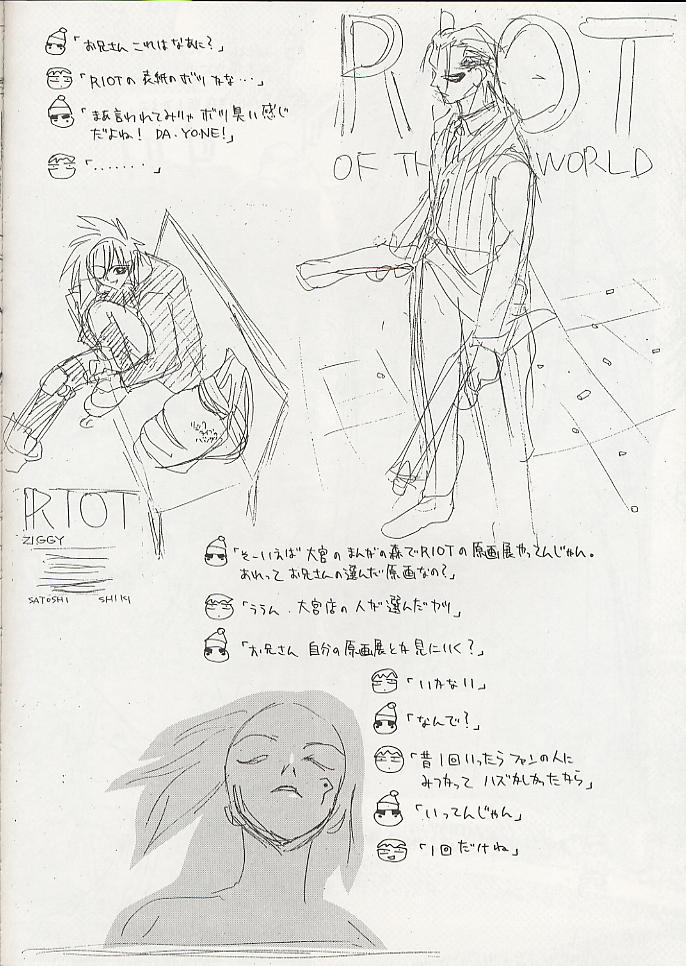 「お兄さん これはなあに?」
「RIOTの表紙のボツかな…」
「まあ言われてみりゃボツ臭い感じ
だよね! DA・YONE!」
「・・・・・・・」
RIOT
OF THE WORLD
RIOT
ZIGGY
SATOSHI SHIKI
「そーいえば大宮のまんがの森でRIOTの原画展やってんじゃん。
あれってお兄さんの選んだ原画なの?」
「ううん、大宮店の人が選んだヤツ」
「お兄さん 自分の原画展とか見にいく?」
「いかない」
「なんで?」
「昔1回いったらファンの人に
みつかって ハズかしかったから」
「いってんじゃん」
「1回だけね」